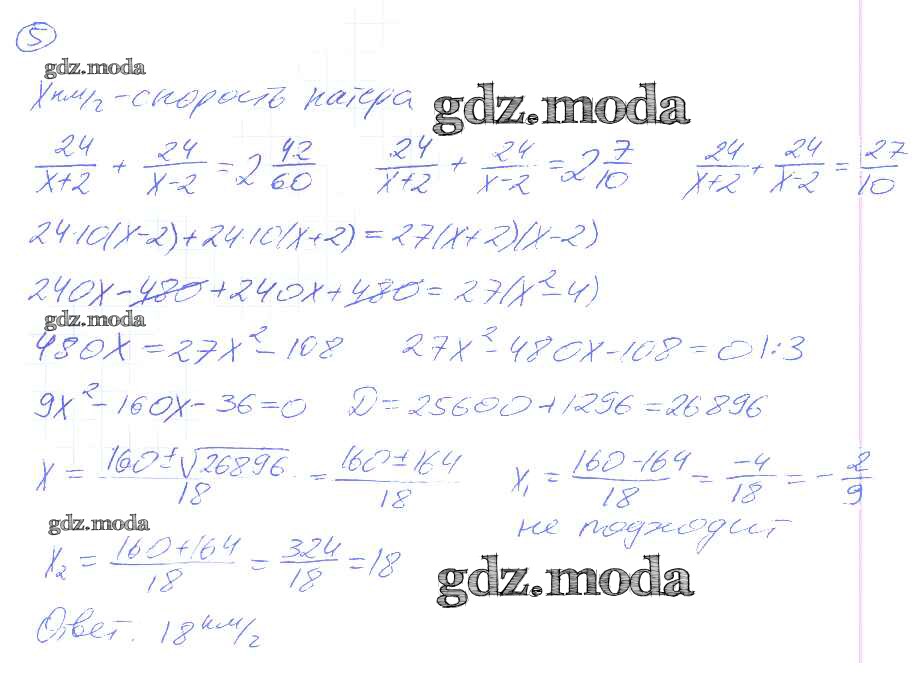 5
gdz.moda
x км/ч - скорость катера
gdz.moda
24/(x+2) + 24/(x-2) = 2 42/60   24/(x+2) + 24/(x-2) = 2 7/10   24/(x+2) + 24/(x-2) = 27/10
24·10(x-2)+24·10(x+2)=27(x+2)(x-2)
240x-480+240x+480=27(x²-4)
gdz.moda
480x=27x²-108   27x²-480x-108=0 |:3
9x²-160x-36=0   D=25600+1296=26896
x = (160±√26896)/18 = (160±164)/18   x₁ = (160-164)/18 = -4/18 = -2/9
gdz.moda
не подходит
x₂ = (160+164)/18 = 324/18 = 18
gdz.moda
Ответ: 18 км/ч